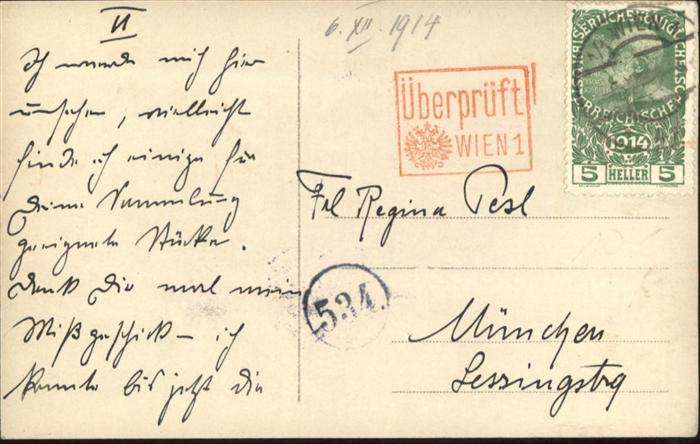 II
Ich werde mich hier
umsehen, vielleicht
finde ich einige für
Deine Sammlung
geeignete Stücke.
Denk Dir mal mein
Mißgeschick – ich
konnte bis jetzt die
6. XII. 1914
Überprüft
WIEN 1
1914
5 HELLER 5
Frl Regina Pesl
534
München
Lessingstrg